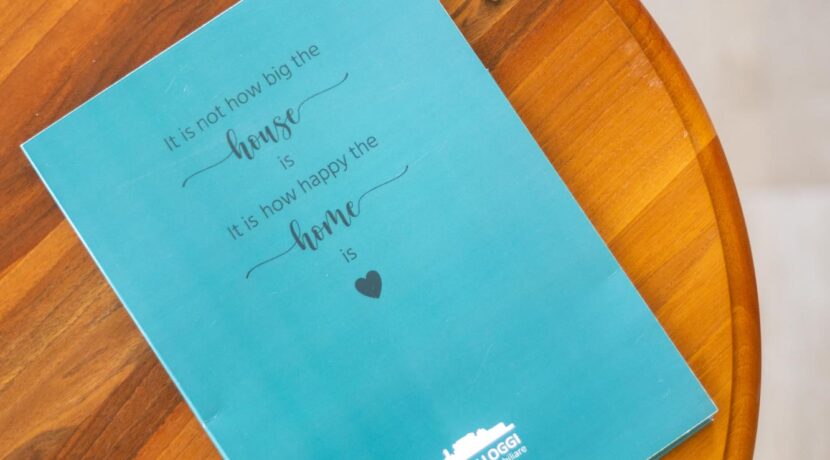 It is not how big the
house
is
It is how happy the
home
is
OGGI